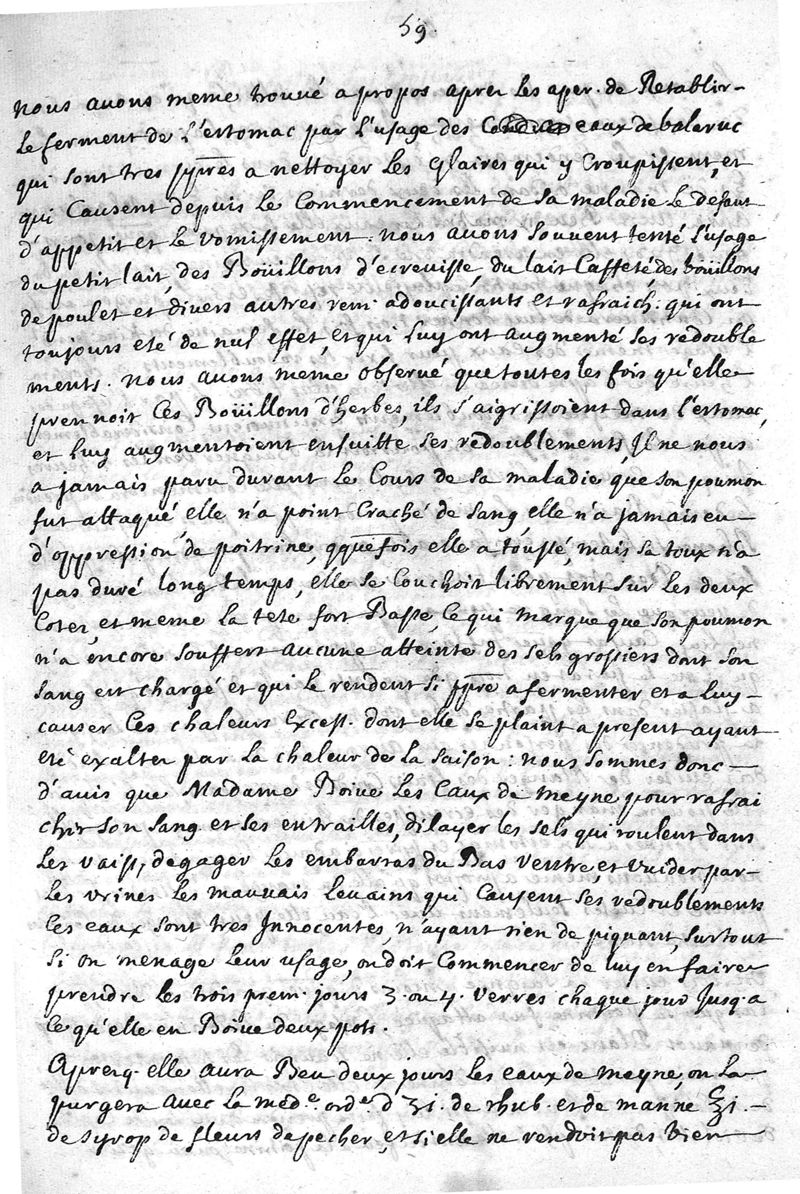 59.
nous avons meme trouvé a propos aprez les aper. de Retablir
le ferment de l'estomac par l'usage des eaux de balaruc
qui sont tres pprēs a nettoyer les glaires qui y Croupissent, et
qui Causent depuis le Commencement de sa maladie le defaut
d'appetit et le vomissement. nous avons souvent tenté l'usage
du petit lait, des Boüillons d'ecrevisse, du lait Caffeté, des boüillons
de poulet et divers autres rem. adoucissants et rafraich. qui ont
toujours eté de nul effet, et qui luy ont augmenté ses redouble
ments. nous avons meme observé que toutes les fois qu'elle
prennoit Ces Boüillons d'herbes, ils s'aigrissoient dans l'estomac,
et luy augmentoient ensuitte ses redoublements, Il ne nous
a jamais paru durant le Cours de sa maladie que son poumon
fut attaqué, elle n'a point Craché de sang, elle n'a jamais eu
d'oppression de poitrine, qquefois elle a toussé, mais sa toux n'a
pas duré long temps, elle se Couchoit librement sur les deux
Cotez, et meme la tete fort Basse, Ce qui marque que son poumon
n'a encore souffert aucune atteinte des sels grossiers dont son
sang est chargé et qui le rendent si pprē a fermenter et a luy
causer Ces chaleurs Excess. dont elle se plaint a present ayant
eté exaltez par la chaleur de la saison : nous sommes donc
d'avis que Madame Boive les Eaux de meyne pour rafrai
chir son sang et ses entrailles, dilayer les sels qui roulent dans
les vaiss, degager les embarras du Bas ventre, et vuider par
les urines les mauvais levains qui Causent ses redoublements
Ces eaux sont tres Innocentes, n'ayant rien de piquant, surtout
si on menage leur usage, on doit Commencer de luy en faire
prendre les trois prem. jours 3. ou 4. verres chaque jour Jusq. a
Ce qu'elle en Boive deux pots.
Aprez q. elle aura Beu deux jours les eaux de meyne, on la
purgera avec la mede. orde. d ʒi. de rhub. et de manne ℥i.
de syrop de fleurs de pecher, et si elle ne rendoit pas bien